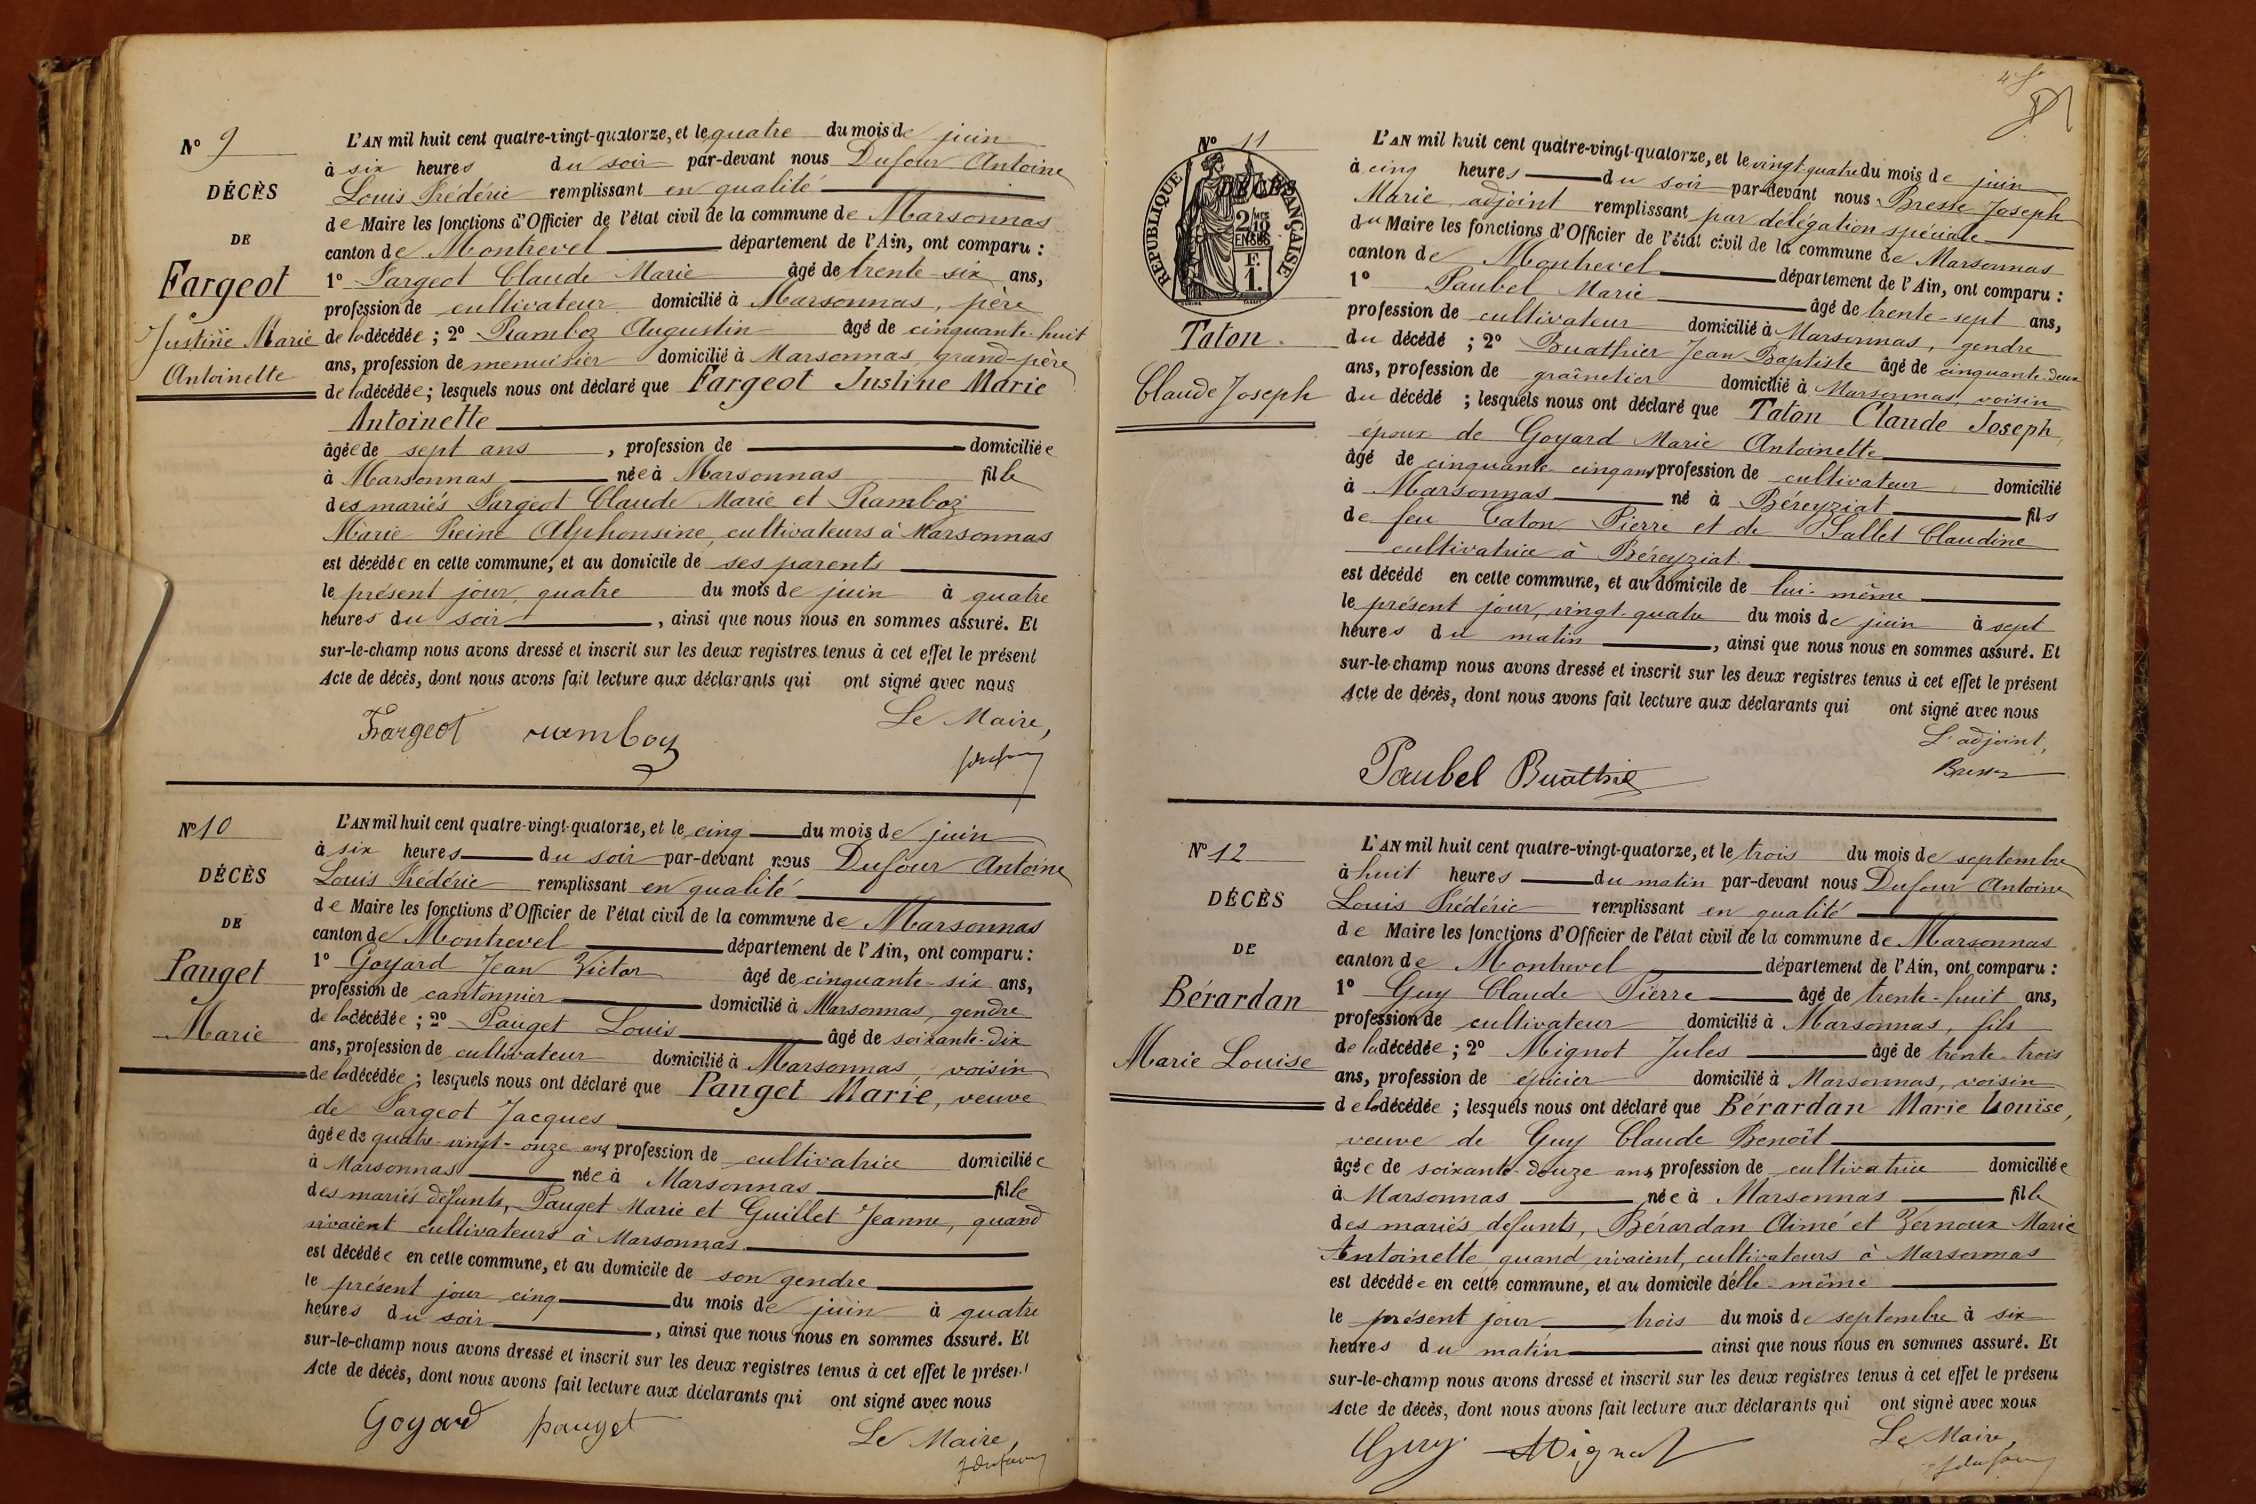 Nº 9
DÉCÈS
DE
Fargeot
Justine Marie
Antoinette
L'AN mil huit cent quatre-vingt-quatorze, et le quatre du mois de juin
à six heures du soir par-devant nous Dufour Antoine
Louis Frédéric remplissant en qualité
de Maire les fonctions d'Officier de l'état civil de la commune de Marsonnas
canton de Montrevel département de l'Ain, ont comparu :
1º Fargeot Claude Marie âgé de trente-six ans,
profession de cultivateur domicilié à Marsonnas, père
de la décédée ; 2º Ramboz Augustin âgé de cinquante-huit
ans, profession de menuisier domicilié à Marsonnas, grand-père
de la décédée ; lesquels nous ont déclaré que Fargeot Justine Marie
Antoinette
âgée de sept ans , profession de domiciliée
à Marsonnas née à Marsonnas fille
des mariés Fargeot Claude Marie et Ramboz
Marie Reine Alphonsine, cultivateurs à Marsonnas
est décédée en cette commune, et au domicile de ses parents
le présent jour, quatre du mois de juin à quatre
heures du soir , ainsi que nous nous en sommes assuré. Et
sur-le-champ nous avons dressé et inscrit sur les deux registres tenus à cet effet le présent
Acte de décès, dont nous avons fait lecture aux déclarants qui ont signé avec nous
Le Maire,
Fargeot ramboz
Nº 10
DÉCÈS
DE
Pauget
Marie
L'AN mil huit cent quatre-vingt-quatorze, et le cinq du mois de juin
à six heures du soir par-devant nous Dufour Antoine
Louis Frédéric remplissant en qualité
de Maire les fonctions d'Officier de l'état civil de la commune de Marsonnas
canton de Montrevel département de l'Ain, ont comparu :
1º Goyard Jean Victor âgé de cinquante-six ans,
profession de cantonnier domicilié à Marsonnas, gendre
de la décédée ; 2º Pauget Louis âgé de soixante-dix
ans, profession de cultivateur domicilié à Marsonnas, voisin
de la décédée ; lesquels nous ont déclaré que Pauget Marie, veuve
de Fargeot Jacques
âgée de quatre-vingt-onze ans profession de cultivatrice domiciliée
à Marsonnas née à Marsonnas fille
des mariés défunts, Pauget Marie et Guillet Jeanne, quand
vivaient cultivateurs à Marsonnas
est décédée en cette commune, et au domicile de son gendre
le présent jour cinq du mois de juin à quatre
heures du soir , ainsi que nous nous en sommes assuré. Et
sur-le-champ nous avons dressé et inscrit sur les deux registres tenus à cet effet le présent
Acte de décès, dont nous avons fait lecture aux déclarants qui ont signé avec nous
Goyard pauget
Le Maire,
Nº 11
DÉCÈS
RÉPUBLIQUE FRANÇAISE
2/10
EN SUS
F.
1.
Taton
Claude Joseph
L'AN mil huit cent quatre-vingt-quatorze, et le vingt-quatre du mois de juin
à cinq heures du soir par-devant nous Bresse Joseph
Marie adjoint remplissant par délégation spéciale
du Maire les fonctions d'Officier de l'état civil de la commune de Marsonnas
canton de Montrevel département de l'Ain, ont comparu :
1º Paubel Marie âgé de trente-sept ans,
profession de cultivateur domicilié à Marsonnas, gendre
du décédé ; 2º Buathier Jean Baptiste âgé de cinquante-deux
ans, profession de graînetier domicilié à Marsonnas, voisin
du décédé ; lesquels nous ont déclaré que Taton Claude Joseph,
époux de Goyard Marie Antoinette
âgé de cinquante-cinq ans, profession de cultivateur domicilié
à Marsonnas né à Béreyziat fils
de feu Taton Pierre et de Sallet Claudine
cultivatrice à Béreyziat
est décédé en cette commune, et au domicile de lui-même
le présent jour, vingt-quatre du mois de juin à sept
heures du matin , ainsi que nous nous en sommes assuré. Et
sur-le-champ nous avons dressé et inscrit sur les deux registres tenus à cet effet le présent
Acte de décès, dont nous avons fait lecture aux déclarants qui ont signé avec nous
L'adjoint,
Paubel Buathié Bresse
Nº 12
DÉCÈS
DE
Bérardan
Marie Louise
L'AN mil huit cent quatre-vingt-quatorze, et le trois du mois de septembre
à huit heures du matin par-devant nous Dufour Antoine
Louis Frédéric remplissant en qualité
de Maire les fonctions d'Officier de l'état civil de la commune de Marsonnas
canton de Montrevel département de l'Ain, ont comparu :
1º Guy Claude Pierre âgé de trente-huit ans,
profession de cultivateur domicilié à Marsonnas, fils
de la décédée ; 2º Mignot Jules âgé de trente-trois
ans, profession de épicier domicilié à Marsonnas, voisin
de la décédée ; lesquels nous ont déclaré que Bérardan Marie Louise,
veuve de Guy Claude Benoît
âgée de soixante-douze ans, profession de cultivatrice domiciliée
à Marsonnas née à Marsonnas fille
des mariés défunts, Bérardan Aimé et Vernoux Marie
Antoinette quand vivaient, cultivateurs à Marsonnas
est décédée en cette commune, et au domicile d'elle-même
le présent jour trois du mois de septembre à six
heures du matin ainsi que nous nous en sommes assuré. Et
sur-le-champ nous avons dressé et inscrit sur les deux registres tenus à cet effet le présent
Acte de décès, dont nous avons fait lecture aux déclarants qui ont signé avec nous
Guy Mignot
Le Maire,